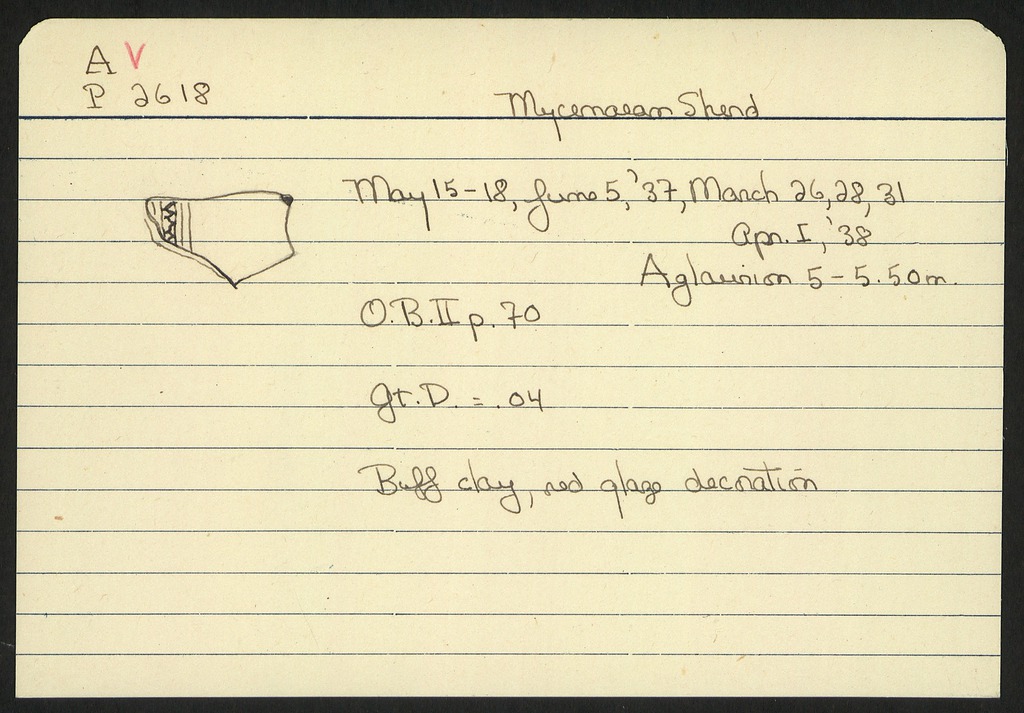 A V
P 2618
Mycenaean Sherd
May 15-18, June 5, '37, March 26, 28, 31
Apr. I, '38
Aglaurion 5 - 5.50m.
O.B. II p. 70
Gt. D. = .04
Buff clay, red glaze decoration